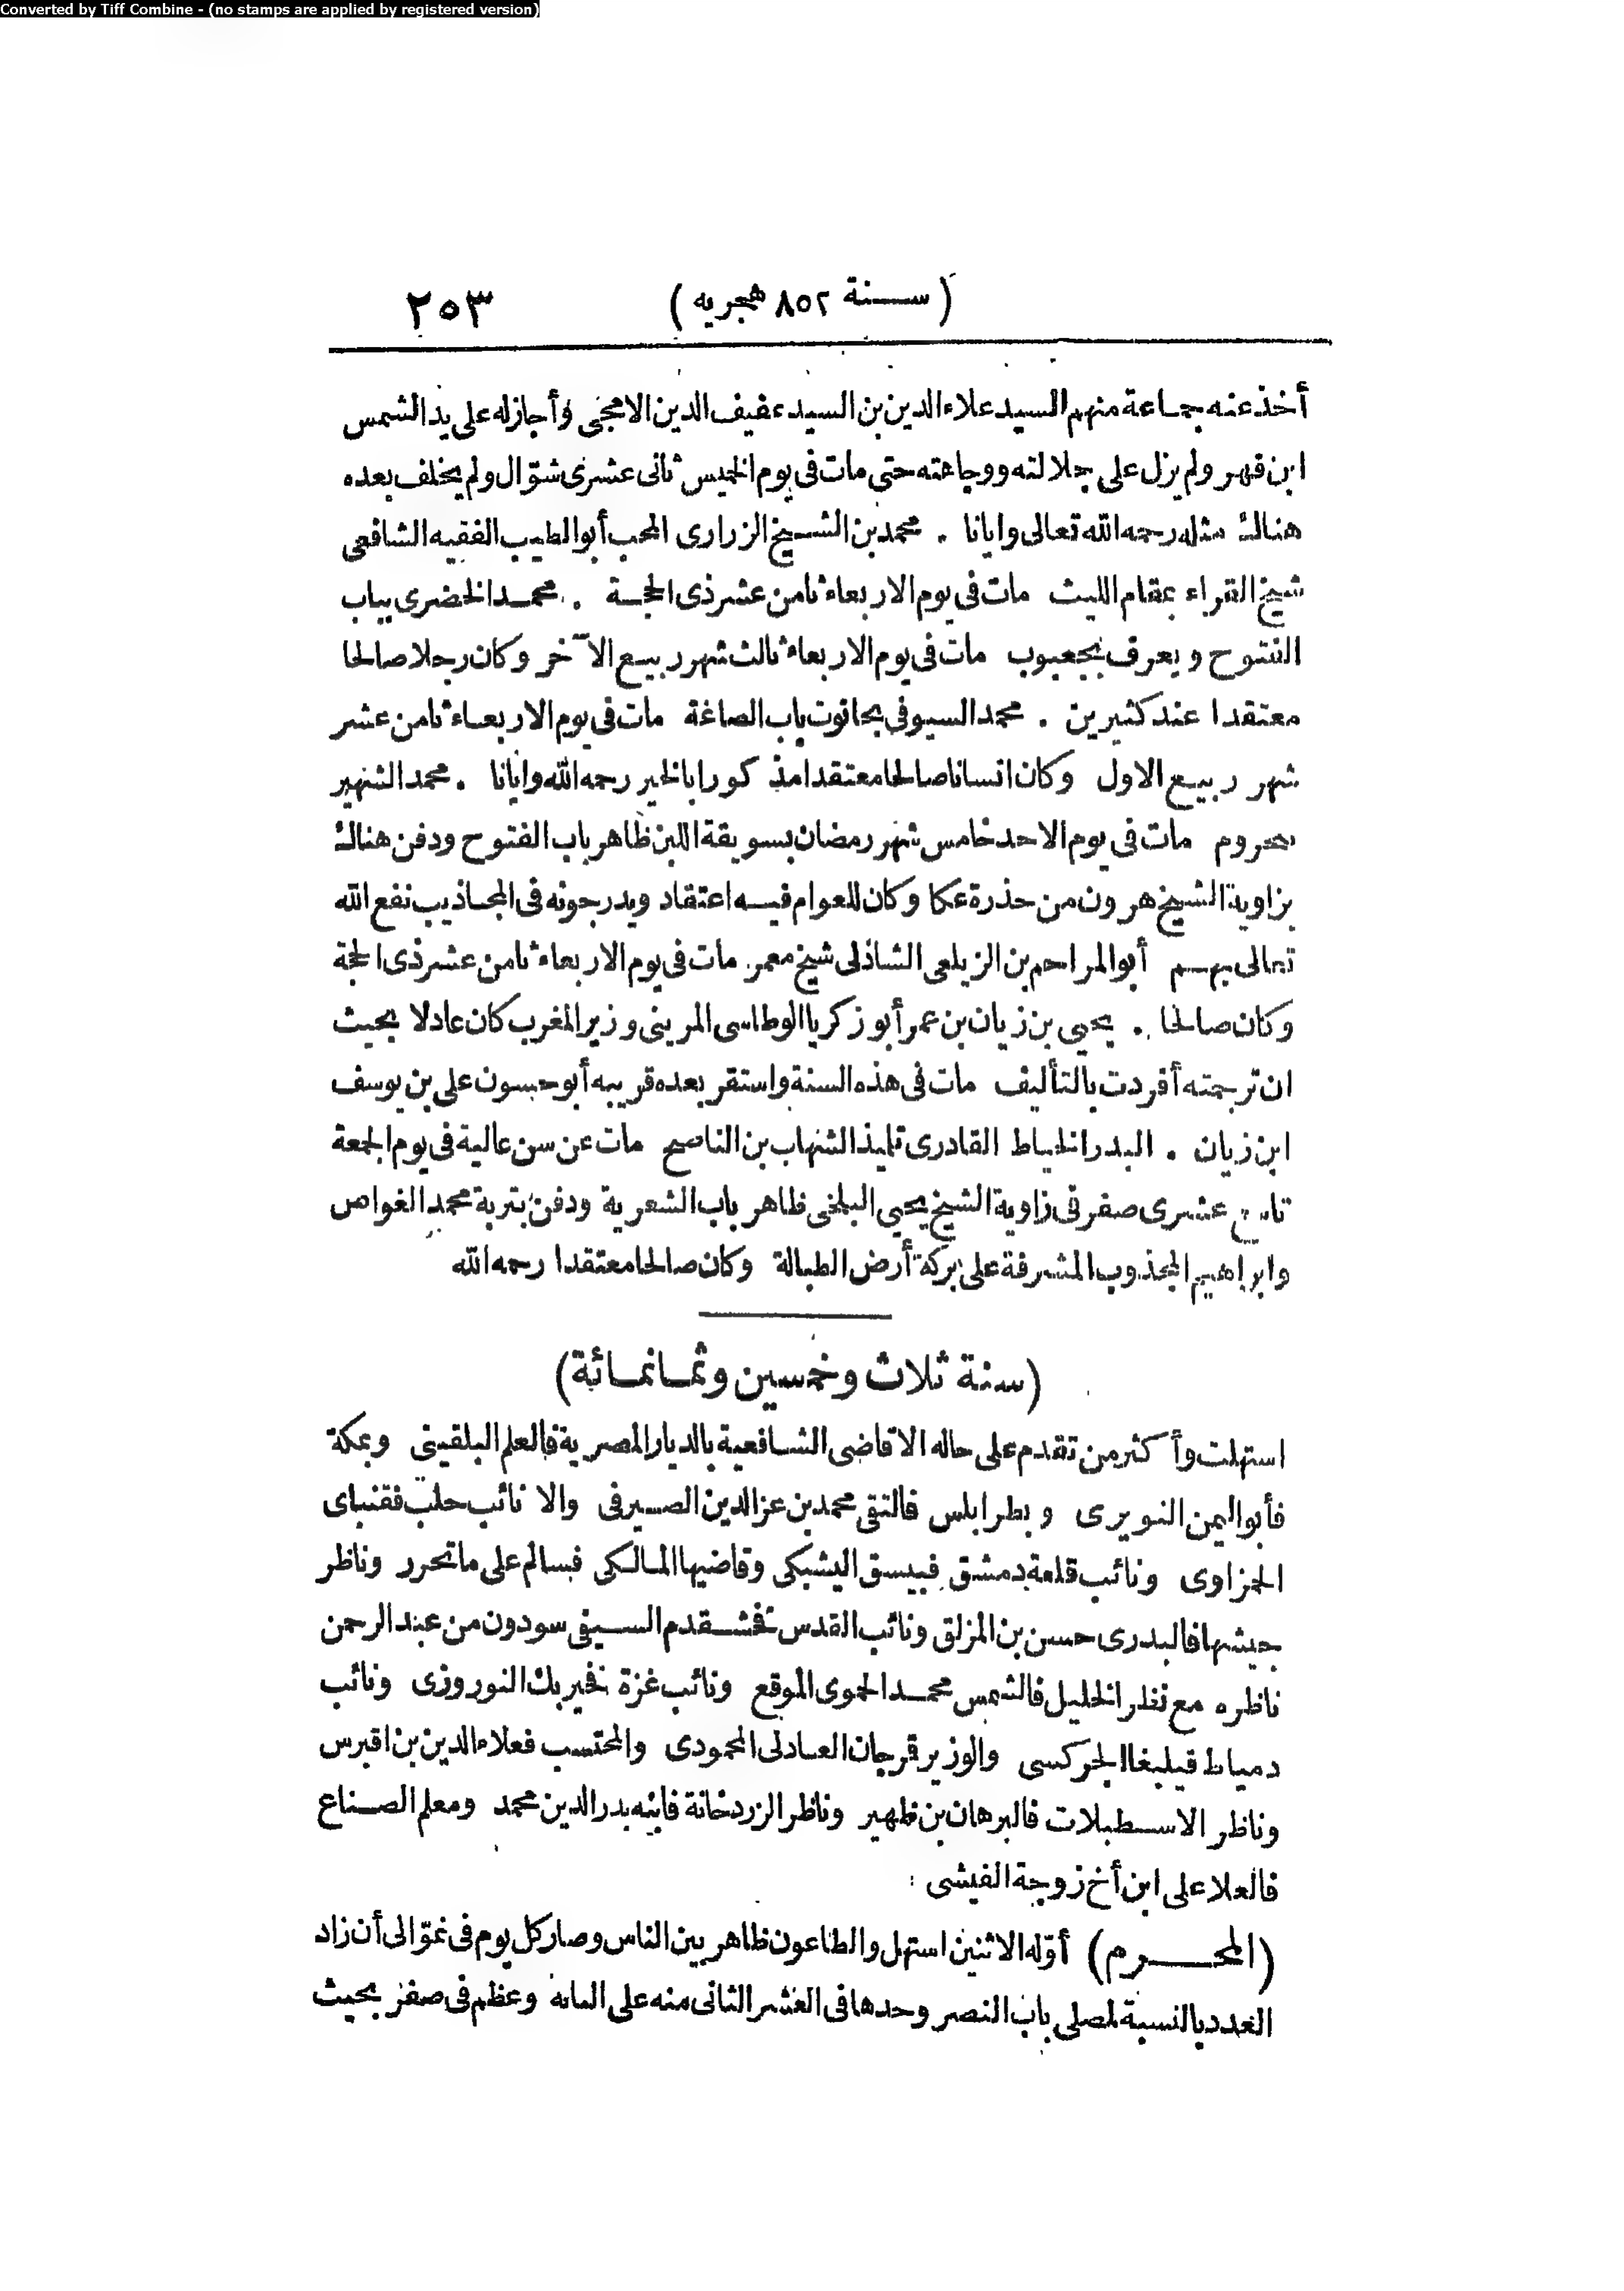 Converted by Tiff Combine - (no stamps are applied by registered version)
(سنة ٨٥٢ هجريه) ٢٥٣
أخذ عنه جماعة منهم السيد علاء الدين بن السيد عفيف الدين الايجى وأجاز له على يد الشمس
ابن قهر ولم يزل على جلالته ووجاهته حتى مات فى يوم الخميس ثانى عشرى شوّال ولم يخلف بعده
هناك مثله رحمه الله تعالى وايانا . محمد بن الشيخ الزرارى المحب أبو الطيب الفقيه الشافعى
شيخ القراء بمقام الليث مات فى يوم الاربعاء ثامن عشر ذى الحجة . محمد الخضرى بباب
الفتوح ويعرف بجعبوب مات فى يوم الاربعاء ثالث شهر ربيع الآخر وكان رجلا صالحا
معتقدا عند كثيرين . محمد السيوفى بحانوت بباب الصاغة مات فى يوم الاربعاء ثامن عشر
شهر ربيع الاول وكان انسانا صالحا معتقدا مذكورا بالخير رحمه الله وايانا . محمد الشهير
بحروم مات فى يوم الاحد خامس شهر رمضان بسويقة اللبن ظاهر باب الفتوح ودفن هناك
بزاوية الشيخ هرون من حذرة عكا وكان للعوام فيه اعتقاد ويدرجونه فى المجاذيب نفع الله
تعالى بهم أبو المراحم بن الزيلعى الشاذلى شيخ معمر مات فى يوم الاربعاء ثامن عشر ذى الحجة
وكان صالحا . يحيى بن زيان بن عمر أبو زكريا الوطاسى المرينى وزير المغرب كان عادلا بحيث
ان ترجمته أفردت بالتأليف مات فى هذه السنة واستقر بعده قريبه أبو حسون على بن يوسف
ابن زيان . البدر الخياط القادرى تلميذ الشهاب بن الناصح مات عن سن عالية فى يوم الجمعة
تاسع عشرى صفر فى زاوية الشيخ يحيى البلخى ظاهر باب الشعرية ودفن بتربة محمد الغواص
وابراهيم المجذوب المشرفة على بركة أرض الطبالة وكان صالحا معتقدا رحمه الله
(سنة ثلاث وخمسين وثمانمائة)
استهلت وأكثر من تقدم على حاله الا قاضى الشافعية بالديار المصرية فالعلم البلقينى وبمكة
فأبو اليمن النويرى وبطرابلس فالتقى محمد بن عز الدين الصيرفى والا نائب حلب فقنباى
الحمزاوى ونائب قلعة دمشق فبيسق اليشبكى وقاضيها المالكى فسالم على ما تحرر وناظر
جيشها فالبدرى حسن بن المزلق ونائب القدس فخشقدم السيفى سودون من عبد الرحمن
ناظره مع نظر الخليل فالشمس محمد الحموى الموقع ونائب غزة فخير بك النوروزى ونائب
دمياط قيلبغا الجركسى والوزير قرجان العادلى المحمودى والمحتسب فعلاء الدين بن اقبرس
وناظر الاسطبلات فالبرهان بن ظهير وناظر الزردخانة فابنه بدر الدين محمد ومعلم الصناع
فالعلا على ابن أخ زوجة الفيشى
(المحرم) أوّله الاثنين استهل والطاعون ظاهر بين الناس وصار كل يوم فى نموّ الى أن زاد
العدد بالنسبة لمصلى باب النصر وحدها فى العشر الثانى منه على المائة وعظم فى صفر بحيث